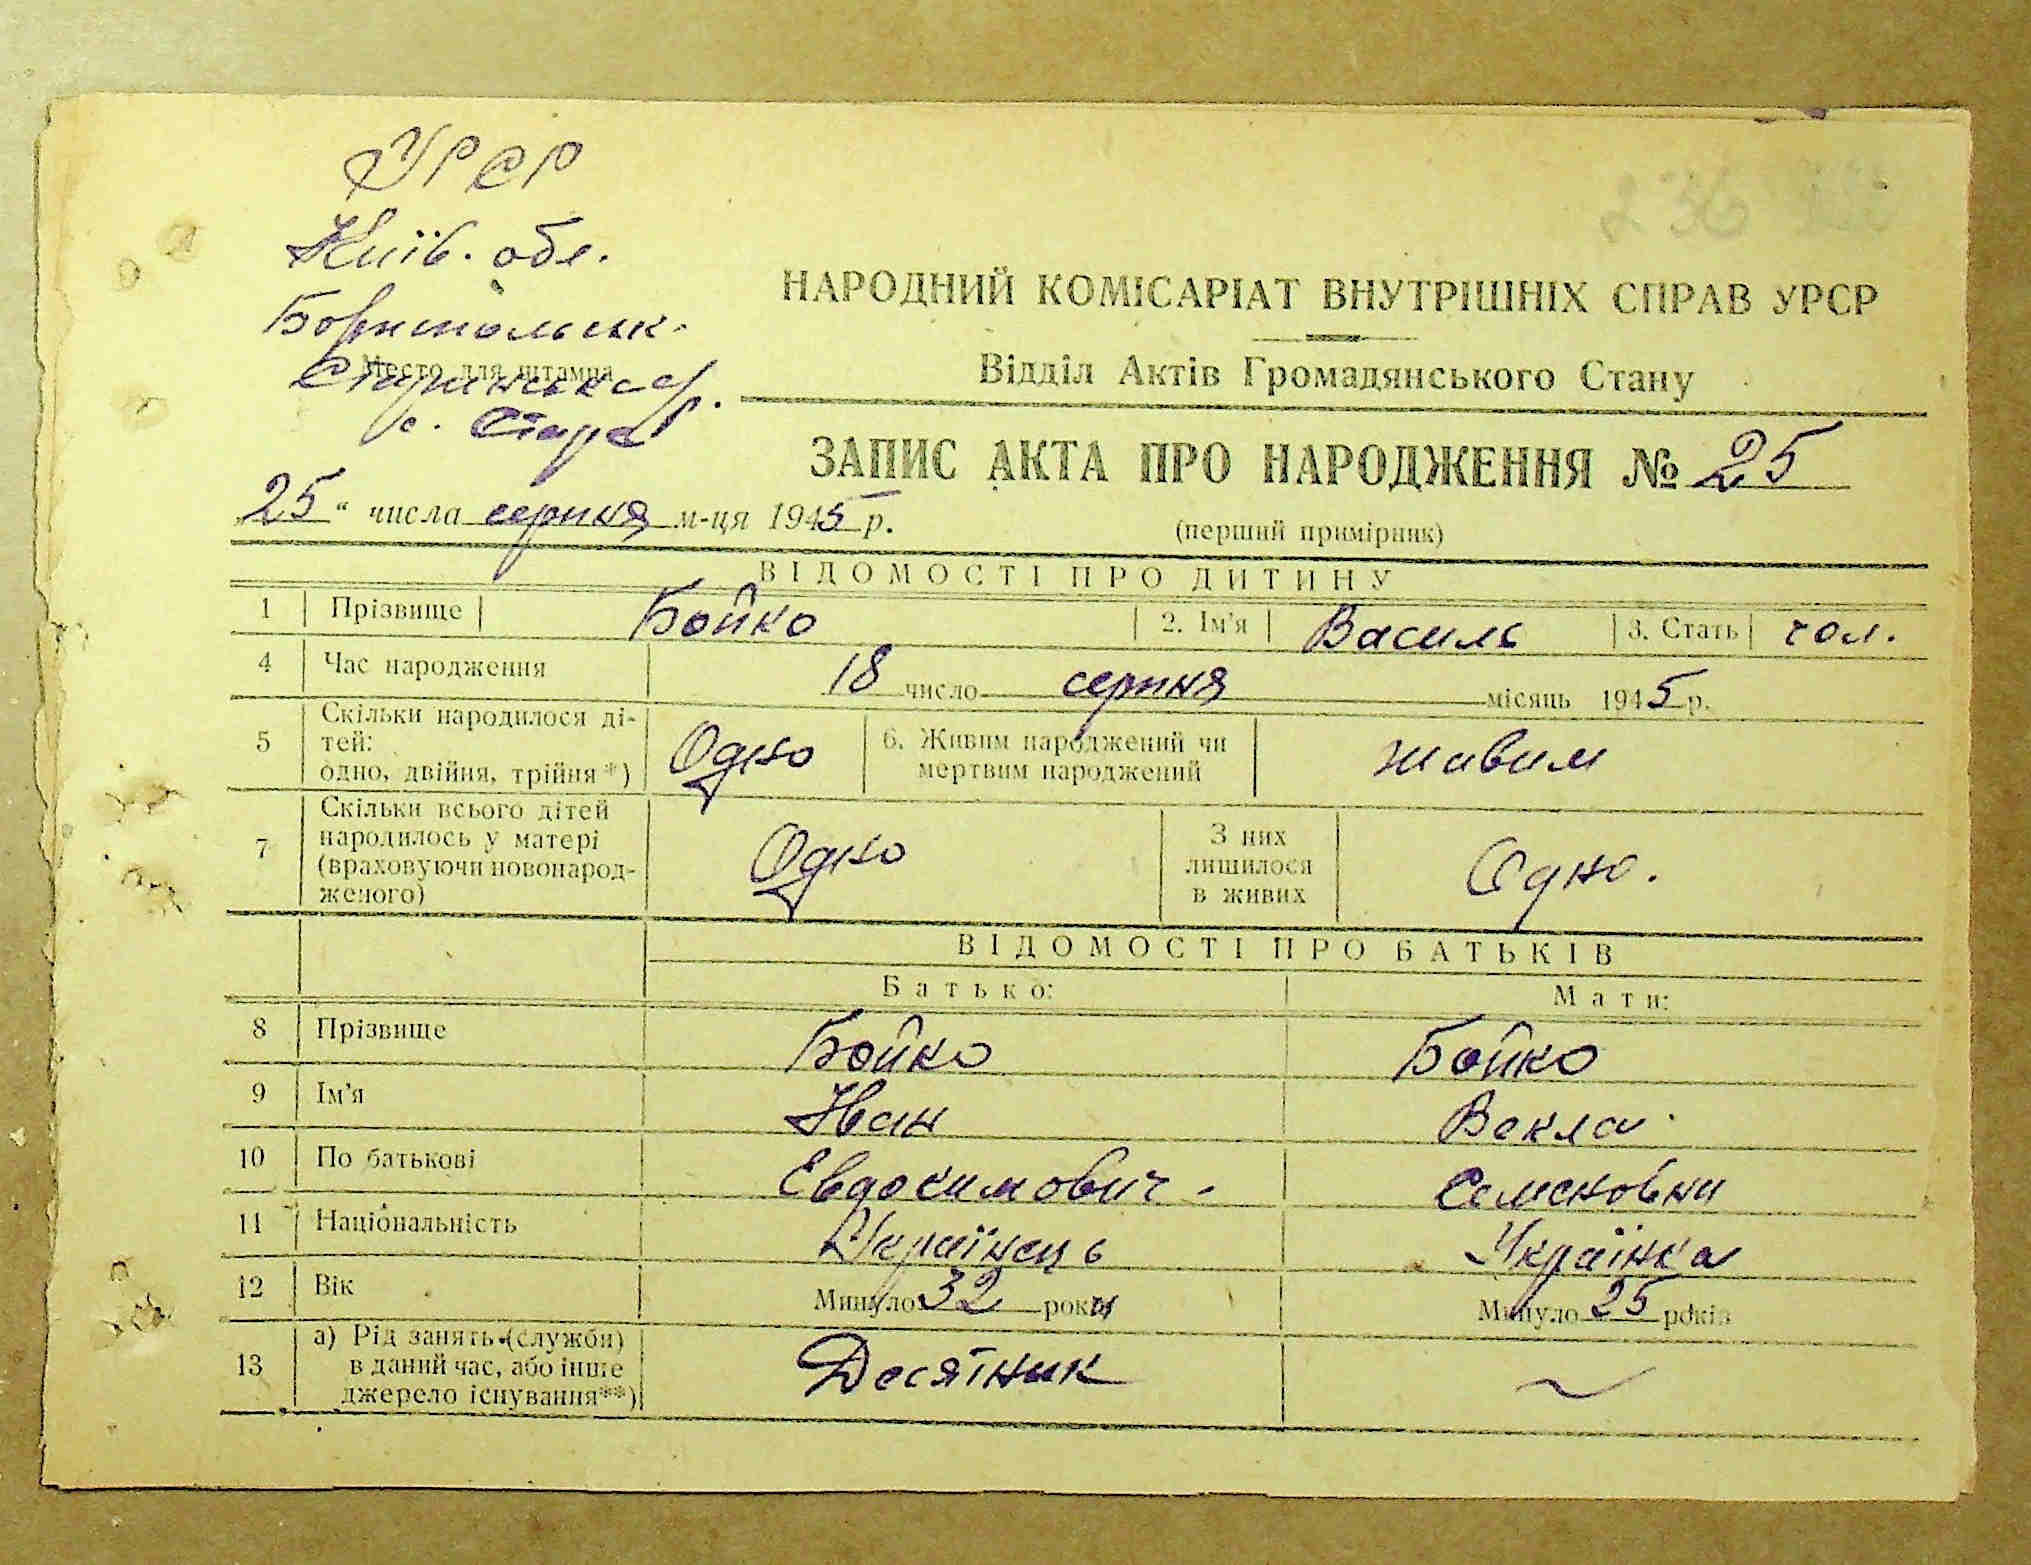 236
УРСР
Київ. обл.
Бориспольськ.
Место для штампа
Старинська с/р.
с. Стара
НАРОДНИЙ КОМІСАРІАТ ВНУТРІШНІХ СПРАВ УРСР
Відділ Актів Громадянського Стану
ЗАПИС АКТА ПРО НАРОДЖЕННЯ № 25
(перший примірник)
„25“ числа серпня м-ця 1945 р.
ВІДОМОСТІ ПРО ДИТИНУ
1 Прізвище Бойко 2. Ім'я Василь 3. Стать чол.
4 Час народження 18 число серпня місяць 1945 р.
5 Скільки народилося ді-
тей:
одно, двійня, трійня*) Одно 6. Живим народжений чи
мертвим народжений живим
7 Скільки всього дітей
народилось у матері
(враховуючи новонарод-
женого) Одно З них
лишилося
в живих Одно.
ВІДОМОСТІ ПРО БАТЬКІВ
Батько: Мати:
8 Прізвище Бойко Бойко
9 Ім'я Іван Векла
10 По батькові Евдокимович - Семеновни
11 Національність Українець Українка
12 Вік Минуло 32 роки Минуло 25 років
13 а) Рід занять (служби)
в даний час, або інше
джерело існування**) Десятник